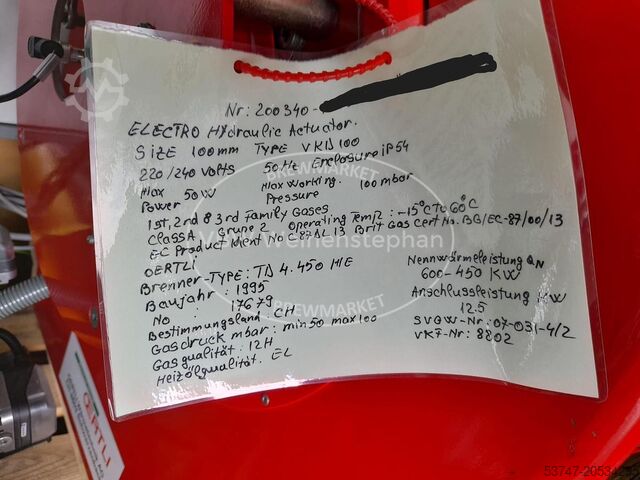 Nr: 200340-
ELECTRO Hydraulic Actuator.
SIZE 100mm TYPE VKD100
220/240 VOLTS 50Hz Enclosure iP54
Max Power 50W Max Working Pressure 100 mbar
1st, 2nd & 3rd Family Gases
Class A Grupe 2 Operating Temp: -15°C to 60°C
EC Product Ident No C 87 AL 13 Brit Gas Cert No. BG/EC-87/00/13
OERTLI
Brenner-TYPE: TD 4.450 H/E
Baujahr: 1995
No : 17679
Bestimmungsland: CH
Gasdruck mbar: min 50 max 100
Gasqualität: 12H
Heizölqualität: EL
Nennwärmeleistung QN
600-450 KW
Anschlussleistung KW
12.5
SVGW-Nr: 07-031-4/2
VKF-Nr: 8802
BREWMARKET
BREWMARKET
Weihenstephan
OERTLI